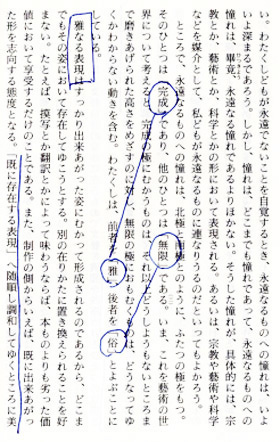 い。わたくしどもが永遠でないことを自覚するとき、永遠なるもの、への憧れは、いよ
いよ深まるであろう。しかし、憧れは、どこまでも憧れであって、永遠なるものへの
憧れは、畢竟、永遠なる憧れであるよりほかない。そうした憧れが、具体的には、宗
教とか、藝術とか、科学とかの形において表現される。あるいは、宗教や藝術や科学
などを媒介として、私どもが永遠なるものに連なりうるのだといってもよかろう。
ところで、永遠なるものへの憧れは、北極と南極のように、ふたつの極をもつ。
そのひとつは「完成」であり、他のひとつは「無限」である。いま、これを藝術の世
界について考えると、完成の極にむかうものは、それ以上どうしようもないところま
で磨きあげられた高さをめざすのに対し、無限の極におもむくものは、どうなってゆ
くかわからない動きを含む。わたくしは、前者を「雅」、後者を「俗」とよぶことに
している。
雅なる表現は、すっかり出来あがった姿にむかって形成されるのであるから、どこま
でもその姿において存在してゆこうとする。別の在りかたに置き換えられることを好
まない。たとえば、摸写とか翻訳とかによって味わうならば、本ものよりも劣った価
値において享受するだけのことである。また、制作の側からいえば、既に出来あがっ
た形を志向する態度となる。「既に存在する表現」へ随順し調和してゆくところに美